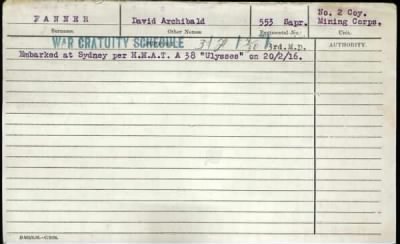 FANNER David Archibald 553 Sapr. No. 2 Coy. Mining Corps.
Surname. Other Names. Regimental No. Unit.
WAR GRATUITY SCHEDULE 3rd.M.D. AUTHORITY.
Embarked at Sydney per H.M.A.T. A 38 "Ulysses" on 20/2/16.